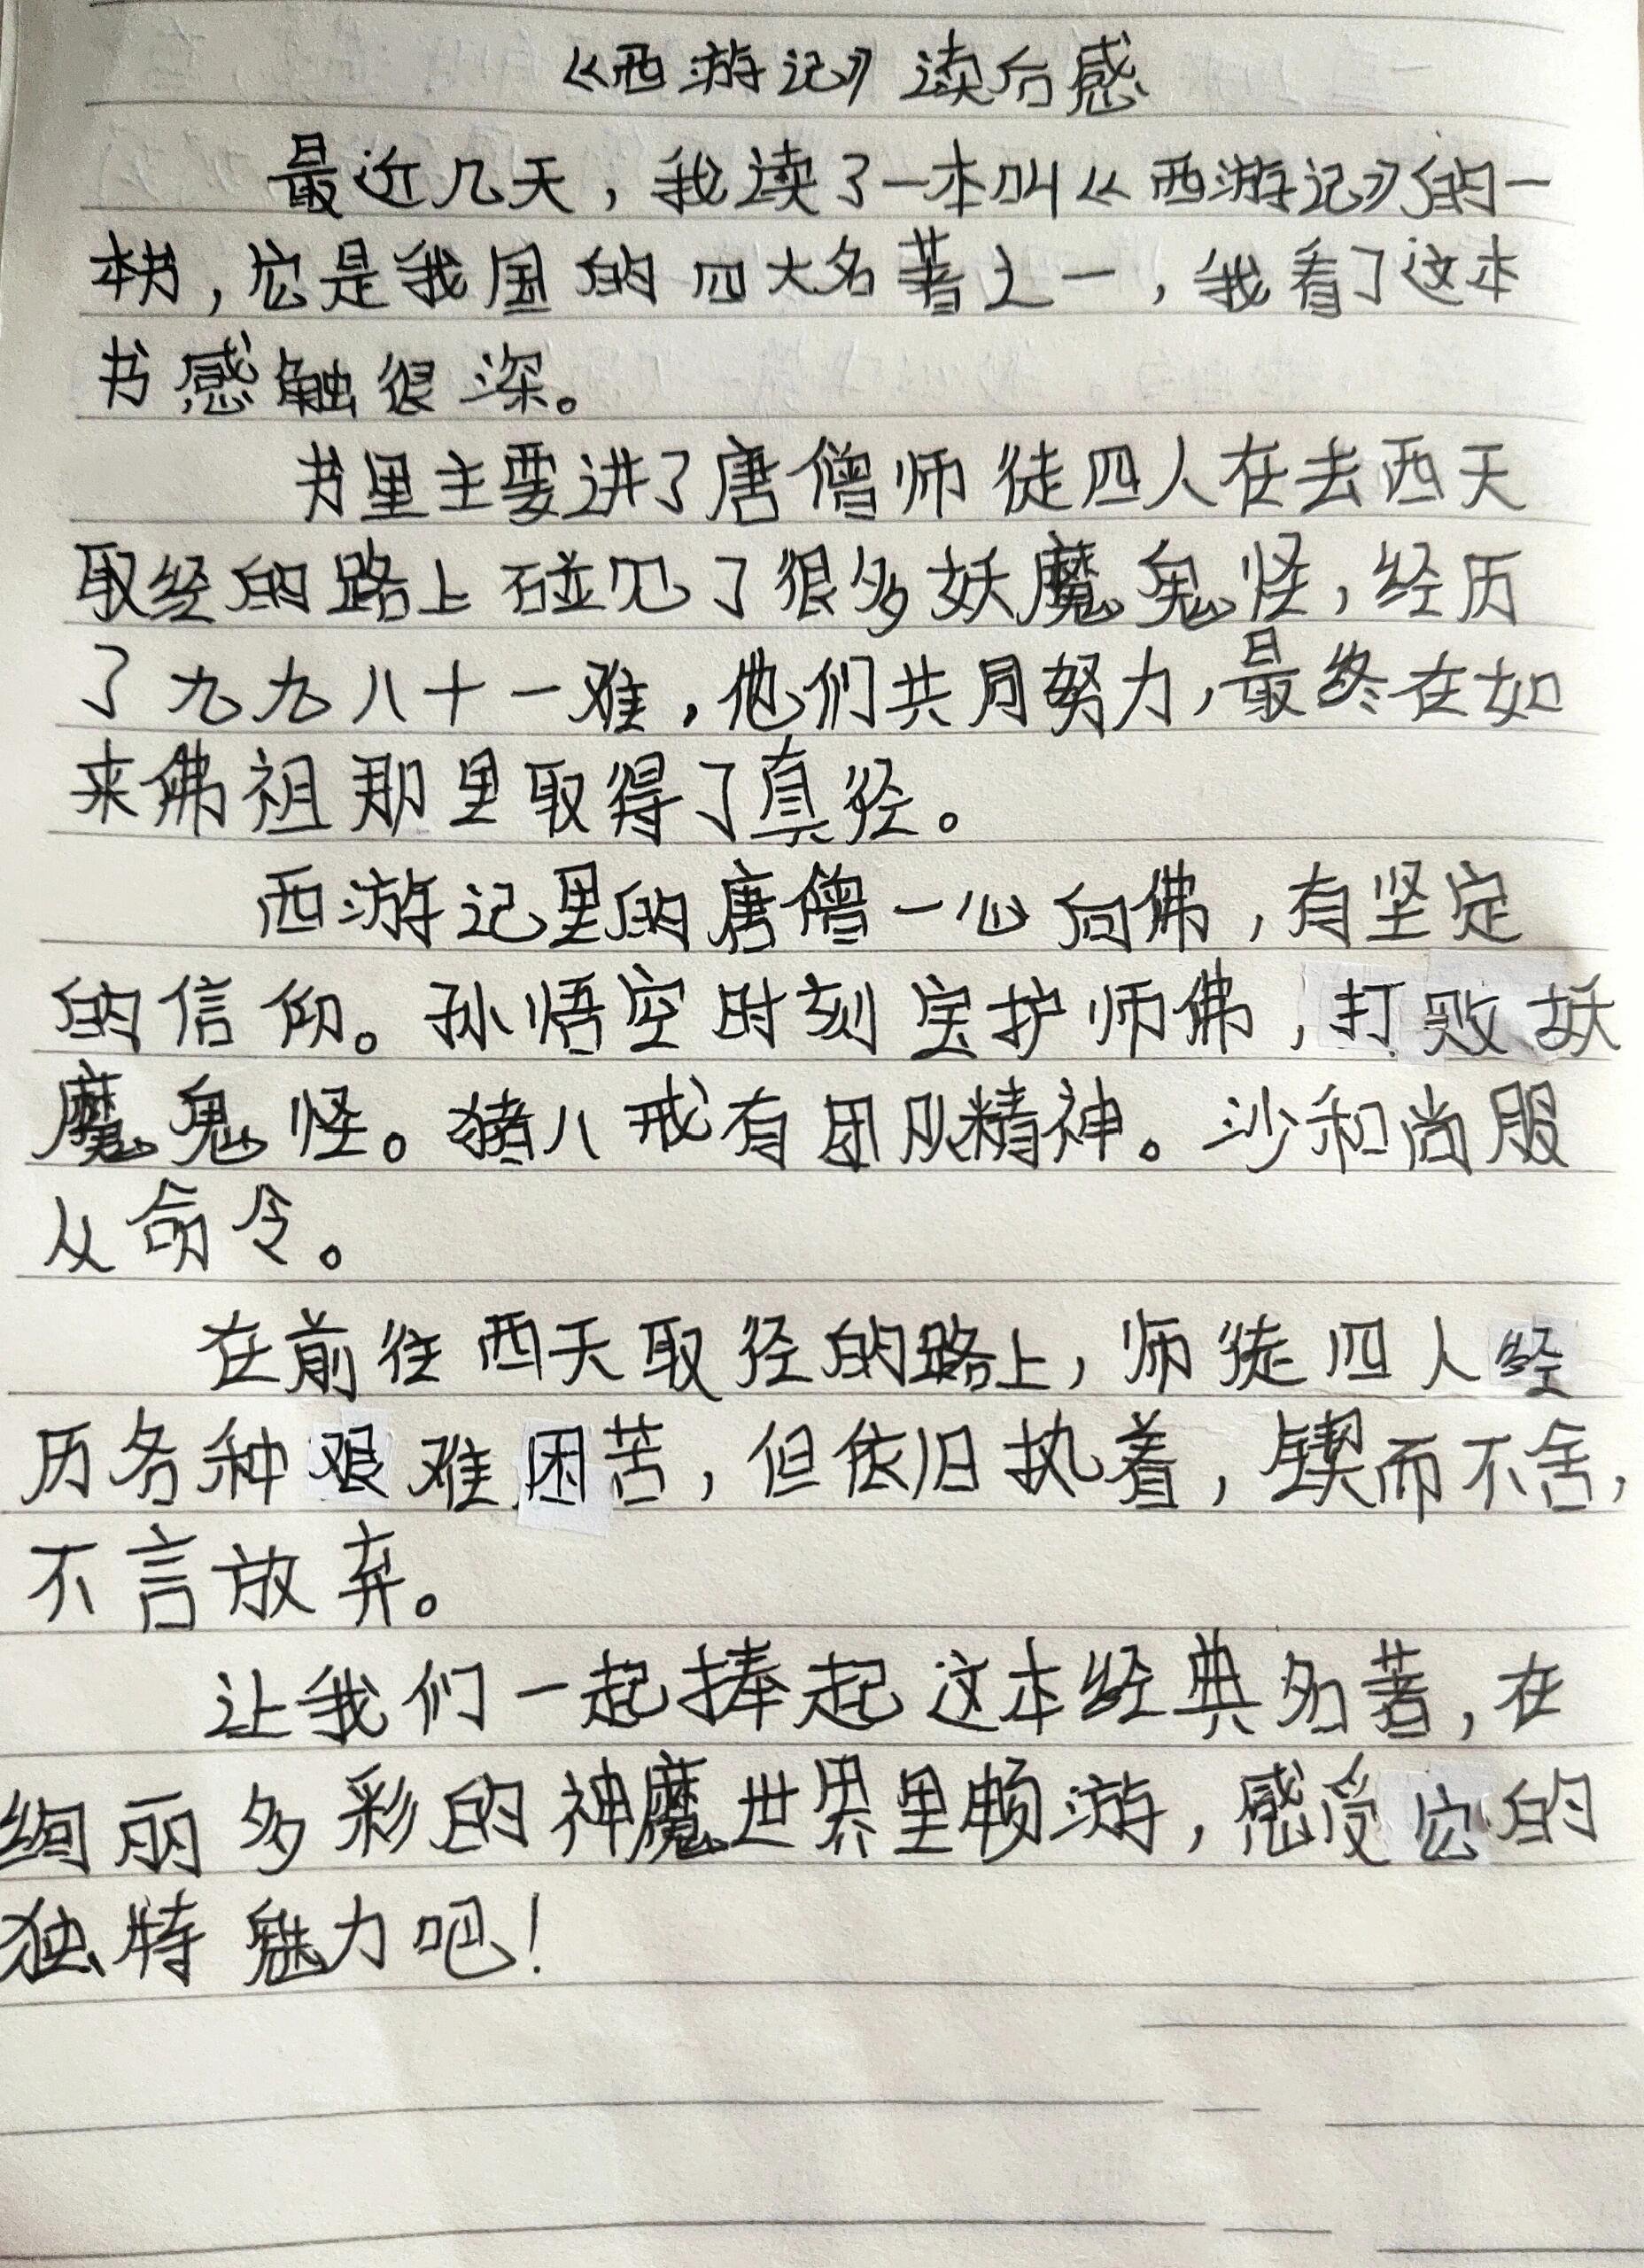 《西游记》读后感
最近几天，我读了一本叫《西游记》的一
本书，它是我国的四大名著之一，我看了这本
书感触很深。
书里主要讲了唐僧师徒四人在去西天
取经的路上碰见了很多妖魔鬼怪，经历
了九九八十一难，他们共同努力，最终在如
来佛祖那里取得了真径。
西游记里的唐僧一心向佛，有坚定
的信仰。孙悟空时刻宝护师佛，打败妖
魔鬼怪。猪八戒有团队精神。沙和尚服
从命令。
在前往西天取径的路上，师徒四人经
历各种艰难困苦，但依旧执着，锲而不舍，
不言放弃。
让我们一起捧起这本经典名著，在
绚丽多彩的神魔世界里畅游，感受它的
独特魅力吧！